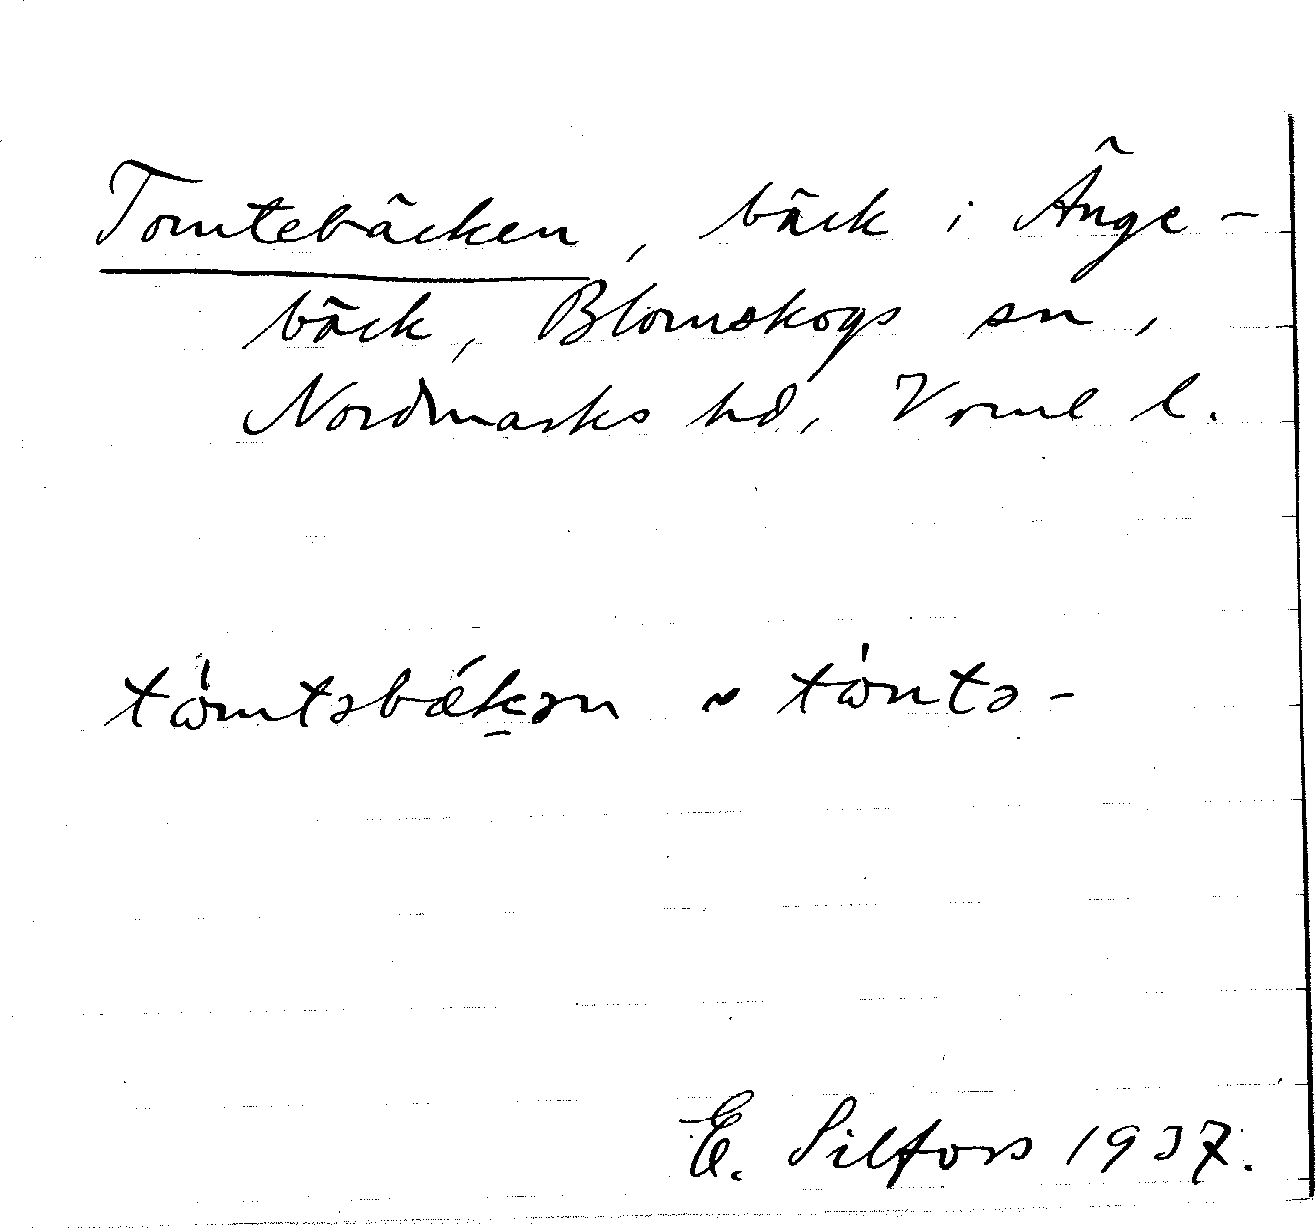 Tomtebäcken, bäck i Änge-
bäck, Blomskogs sn,
Nordmarks hd, Vrml l.
tòmtəbǽk̠ən ~ tòntə-
E. Silfors 1937.